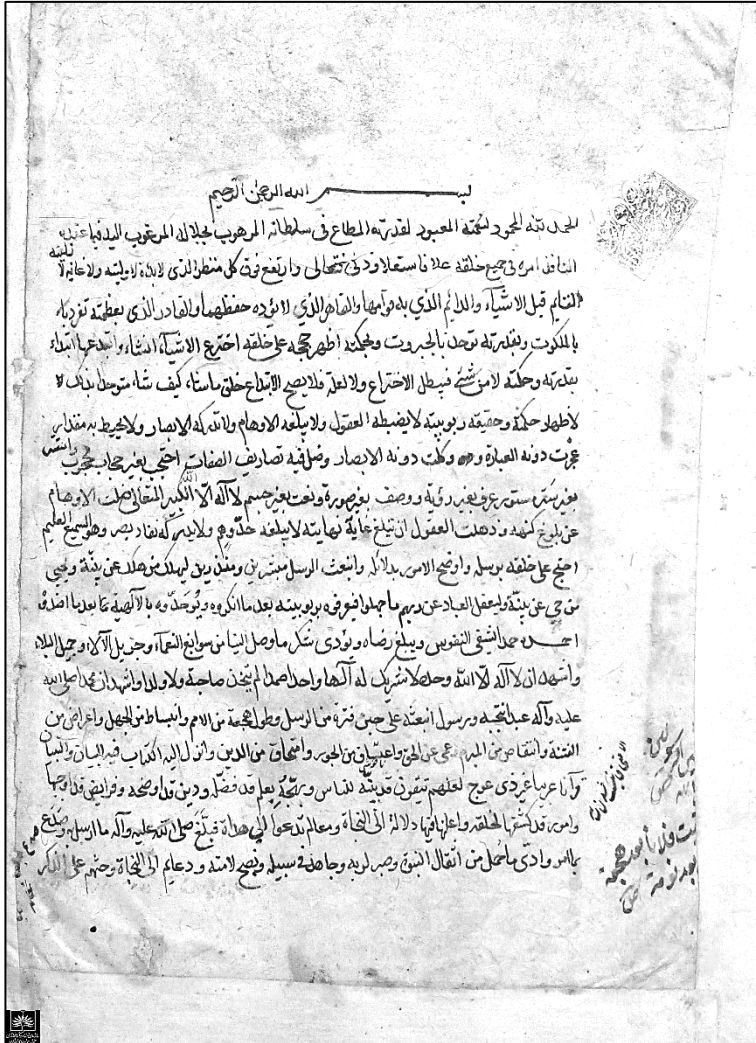 بسم الله الرحمن الرحيم
الحمد لله المحمود لنعمته المعبود لقدرته المطاع في سلطانه المرهوب لجلاله المرغوب اليه فيما عنده
النافذ امره في جميع خلقه علا فاستعلا ودنى فتعالى وارتفع فوق كل منظر الذى لا بدء لاوليته ولا غاية لا زليته
القايم قبل الاشياء والدايم الذي به قوامها والقاهر الذي لا يؤده حفظهما والقادر الذى بعظمته تفرد
بالملكوت وبقدرته توحد بالجبروت وبحكمته اظهر حججه على خلقه اخترع الاشياء انشاء وابتدعها ابتداء
بقدرته وحكمته لا من شئ فيبطل الاختراع ولا لعلة فلا يصح الابتداع خلق ما شاء كيف شاء متوحدا بذلك
لاظهار حكمته وحقيقة ربوبيته لا يضبطه العقول ولا يبلغه الاوهام ولا تدركه الابصار ولا يحيط به مقدار
عجزت دونه العبارة وكلت دونه الابصار وضل فيه تصاريف الصفات احتجب بغير حجاب محجوب واستتر
بغير ستر مستور عرف بغير رؤية ووصف بغير صورة ونعت بغير جسم لا اله الا الله الكبير المتعالى ضلت الاوهام
عن بلوغ كنهه وذهلت العقول ان تبلغ غاية نهايته لا يبلغه حد وهم ولا يدركه نفاذ بصر وهو السميع العليم
احتج على خلقه برسله واوضح الامور بدلائله وابتعث الرسل مبشرين ومنذرين ليهلك من هلك عن بينة ويحيى
من حي عن بينة وليعقل العباد عن ربهم ما جهلوا فيعرفوه بربوبيته بعد ما انكروه ويوحدوه بالالهية بعد ما اضدوه
احمده حمدا يشفى النفوس ويبلغ رضاه ويؤدى شكر ما وصل الينا من سوابغ النعماء وجزيل الآلاء وجميل البلاء
واشهد ان لا اله الا الله وحده لا شريك له الها واحدا صمدا لم يتخذ صاحبة ولا ولدا واشهد ان محمدا صلى الله
عليه وآله عبد انتجبه ورسول ابتعثه على حين فترة من الرسل وطول هجعة من الامم وانبساط من الجهل واعراض من
الفتنة وانتقاض من المبرم وعمى عن الحق واعتساف من الجور وامتحاق من الدين وانزل اليه الكتاب فيه البيان والتبيان
قرآنا عربيا غير ذى عوج لعلهم يتقون قد بينه للناس ونهجه بعلم قد فصله ودين قد اوضحه وفرايض قد اوجبها
وامور قد كشفها لخلقه واعلنها فيها دلالة الى النجاة ومعالم تدعوا الى هداه فبلغ صلى الله عليه وآله ما ارسل به وصدع
بما امر وادى ما حمل من اثقال النبوة وصبر لربه وجاهد في سبيله ونصح لامته ودعاهم الى النجاة وحثهم على الذكر